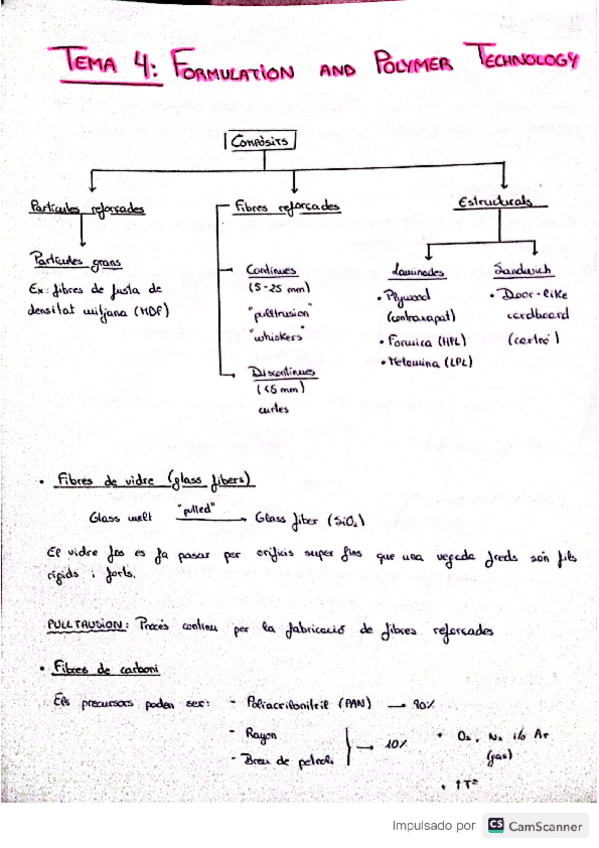 TEMA 4: FORMULATION AND POLYMER TECHNOLOGY
Compòsits
Partícules reforçades
Fibres reforçades
Estructurals
Partícules grans
Ex: fibres de fusta de
densitat mitjana (MDF)
Continues
(5-25 mm)
"pulltrusion"
"whiskers"
Discontinues
(<5 mm)
curtes
Laminades
• Plywood
(contraxapat)
• Formica (HPL)
• Melamina (LPL)
Sandwich
• Door-like
cardboard
(cartró)
• Fibres de vidre (glass fibers)
Glass melt "pulled" → Glass fiber (SiO₂)
El vidre fos es fa passar per orificis super fins que una vegada freds són fils
rígids i forts.
PULLTRUSION: Procés continu per la fabricació de fibres reforçades
• Fibres de carboni
Els precursors poden ser: - Poliacrilonitril (PAN) → 90%
- Rayon
- Breu de petroli
→ 10%
• O₂, N₂ i/o Ar
(gas)
• ↑Tª
Impulsado por CS CamScanner